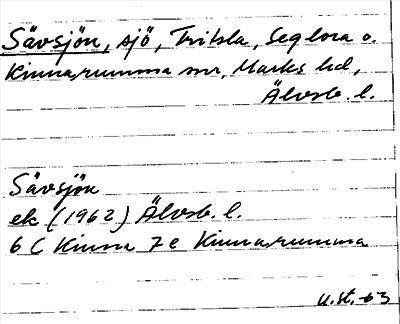 Sävsjön, sjö, Fritsla, Seglora o.
Kinnarumma snr, Marks hd,
Älvsb. l.
Sävsjön
ek (1962) Älvsb. l.
6 C Kinna 7 e Kinnarumma
U.st. 63